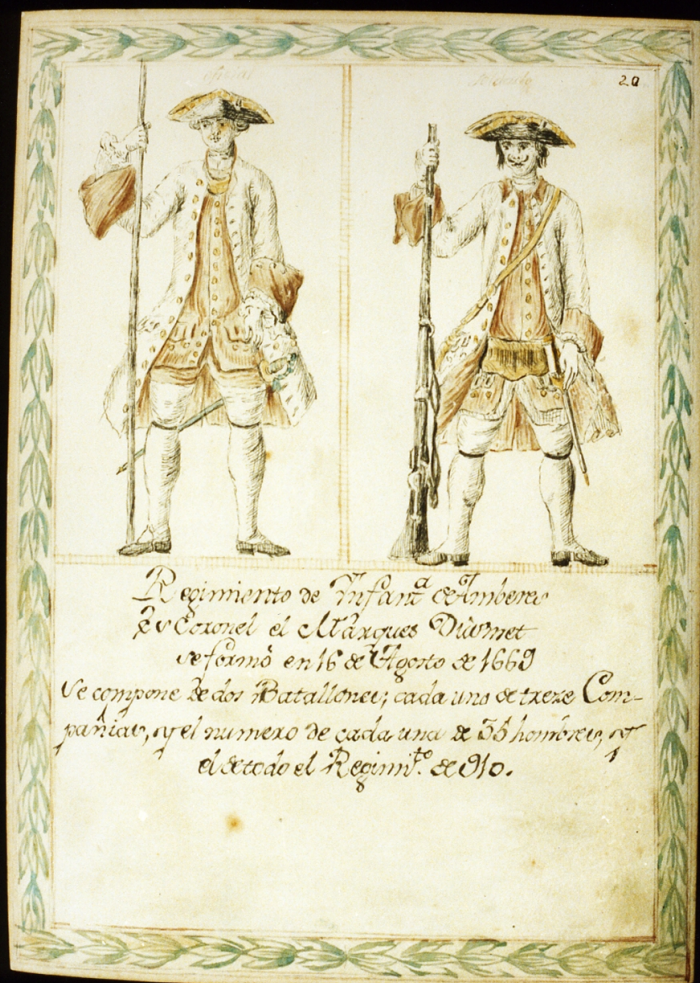 oficial
Soldado
20
Regimiento de Infanª. de Amberes
Es Coronel el Marques
se formó en 16 de Agosto de 1669
Se compone de dos Batallones; cada uno de treze Com-
pañias, y el numero de cada una de 35 hombres, y
el de todo el Regimᵗᵒ. de 910.